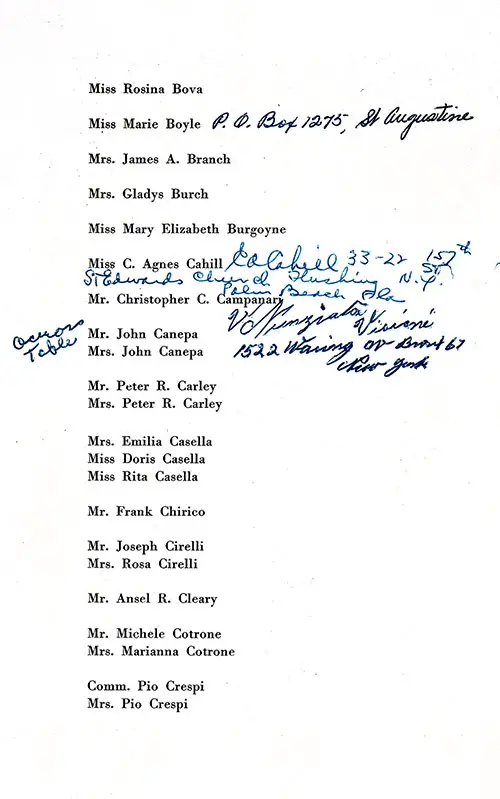 Miss Rosina Bova
Miss Marie Boyle P. O. Box 1275, St Augustine
Mrs. James A. Branch
Mrs. Gladys Burch
Miss Mary Elizabeth Burgoyne
Miss C. Agnes Cahill CaCahill 33-22 157th St.
St Edwards Church Flushing N.Y.
Palm Beach Fla
Mr. Christopher C. Campanari
Nunziata Viviani
across
Table
Mr. John Canepa
Mrs. John Canepa 1522 Waring av Bronx 67
New York
Mr. Peter R. Carley
Mrs. Peter R. Carley
Mrs. Emilia Casella
Miss Doris Casella
Miss Rita Casella
Mr. Frank Chirico
Mr. Joseph Cirelli
Mrs. Rosa Cirelli
Mr. Ansel R. Cleary
Mr. Michele Cotrone
Mrs. Marianna Cotrone
Comm. Pio Crespi
Mrs. Pio Crespi